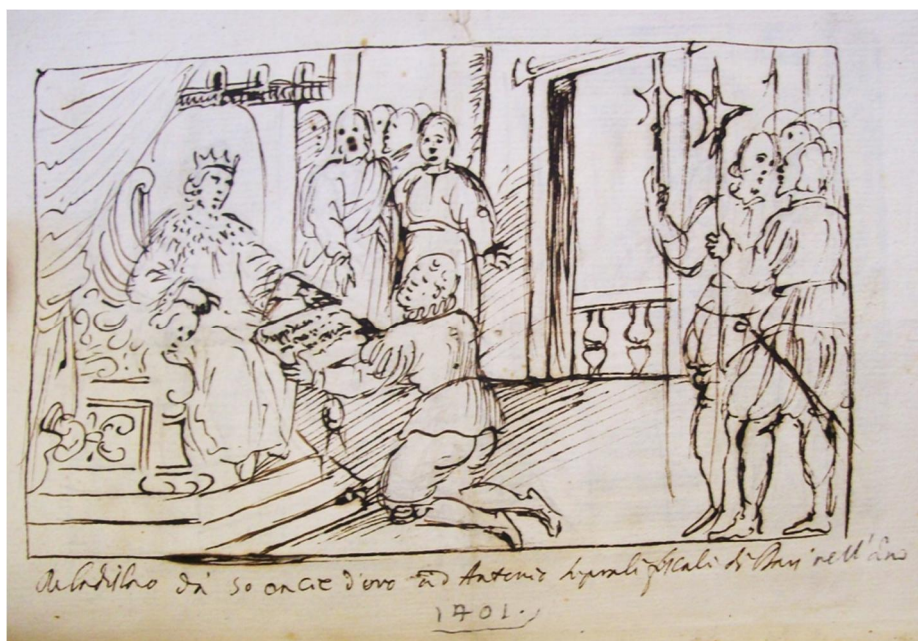 Re Ladislao dà 50 oncie d'oro ad Antonio fiscali di Bari nell'Ano
1401.